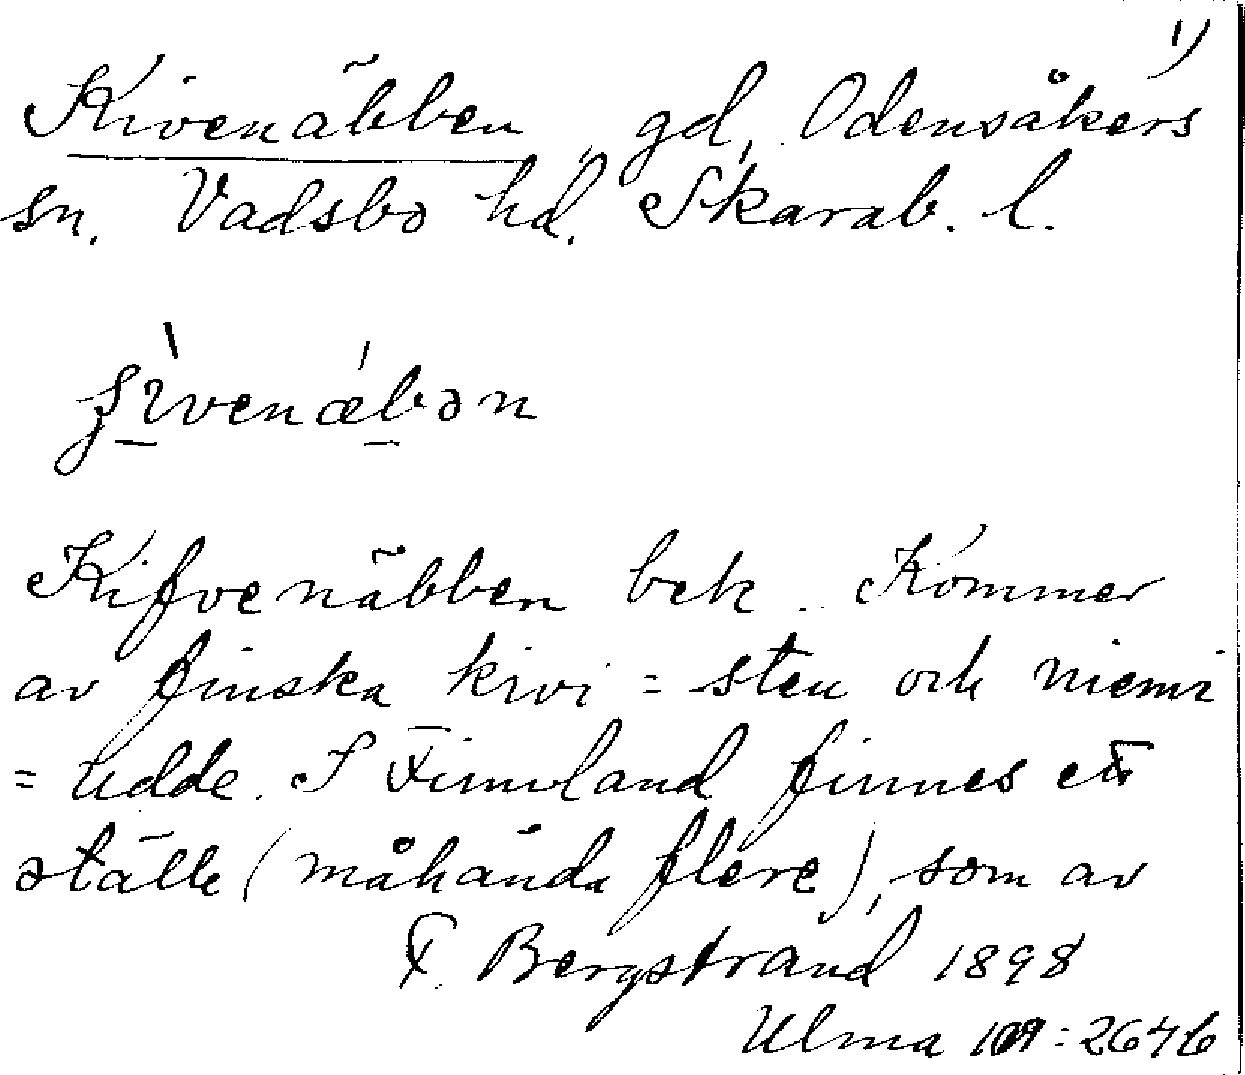 1)
Kivenäbben, gd, Odensåkers
sn. Vadsbo hd. Skarab. l.
Kifvenäbben bek. Kommer
av finska kivi = sten och niemi
= udde. I Finnland finnes ett
ställe (måhända flere), som av
F. Bergstrand 1898
Ulma 109:264 b